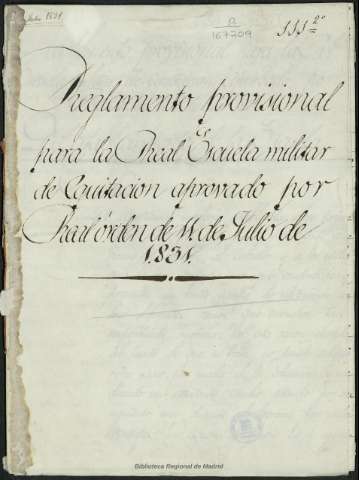 Julio 1831
a
167709
111 2º
Reglamento provisional
para la Real Escuela militar
de Equitacion aprovado por
Real órden de 11 de Julio de
1.831.
Biblioteca Regional de Madrid